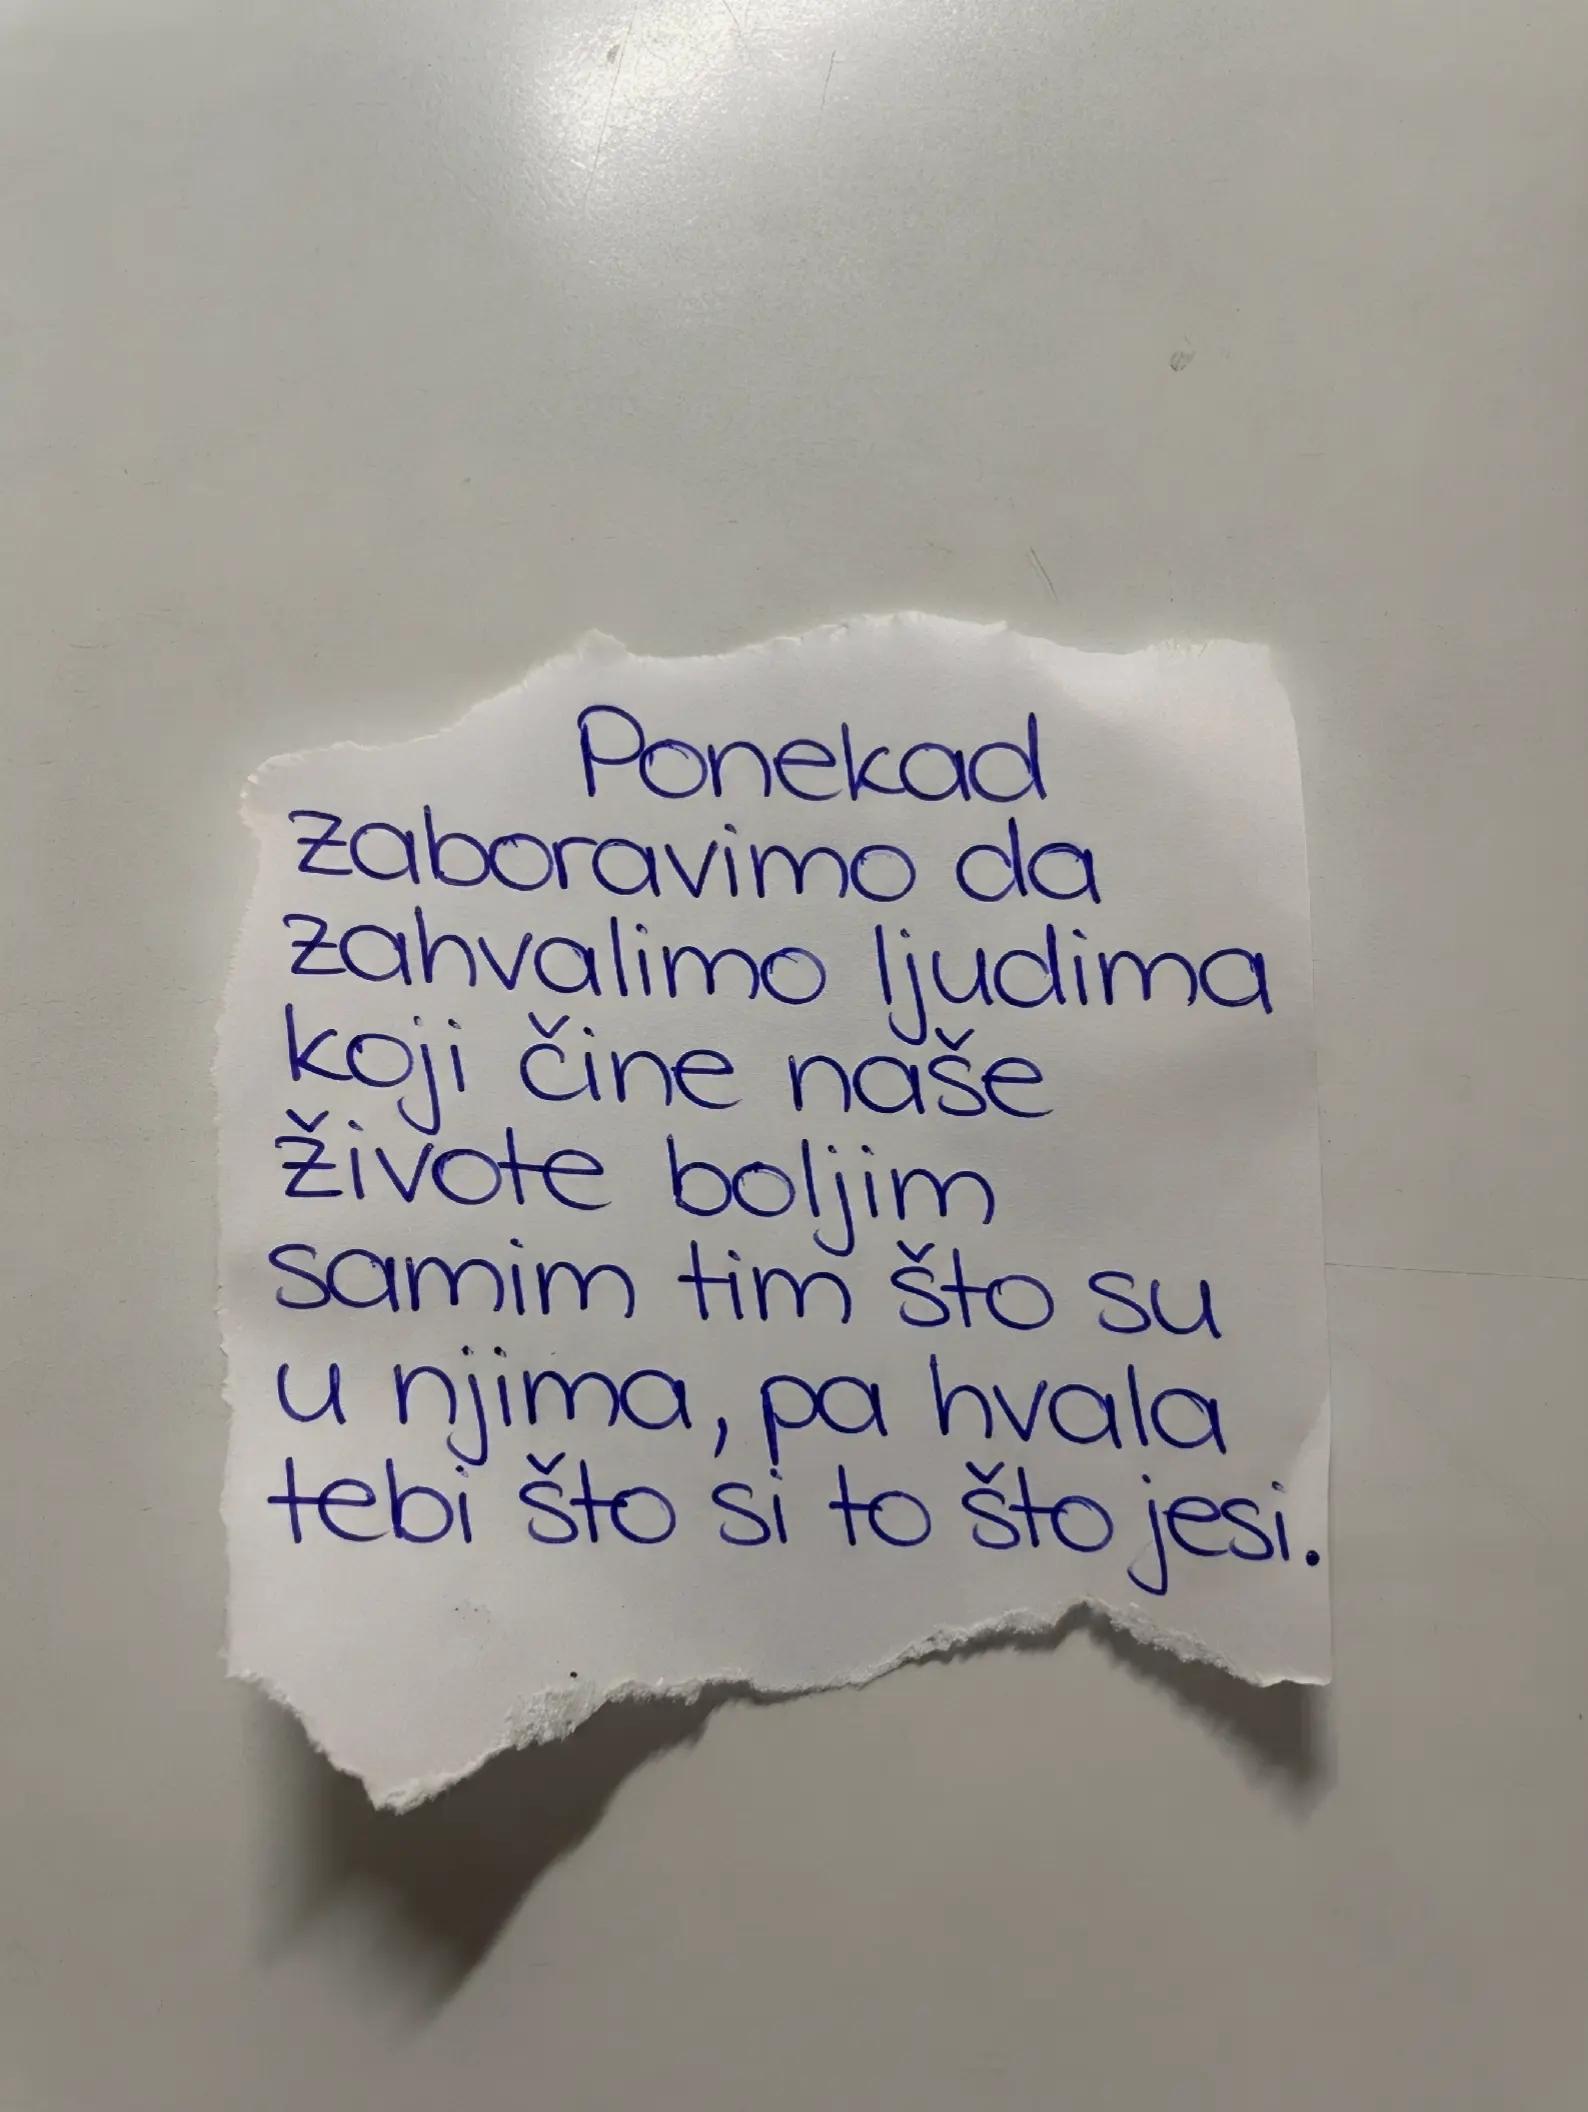 Ponekad
zaboravimo da
zahvalimo ljudima
koji čine naše
živote boljim
samim tim što su
u njima, pa hvala
tebi što si to što jesi.